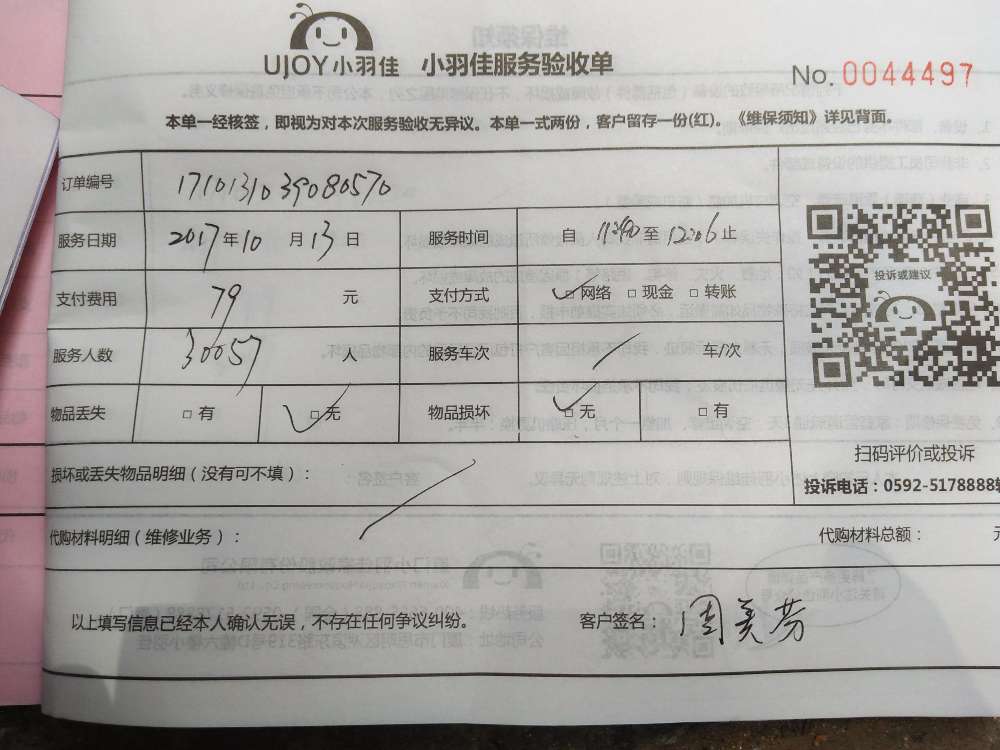 UJOY小羽佳 小羽佳服务验收单
No. 0044497
本单一经核签，即视为对本次服务验收无异议。本单一式两份，客户留存一份(红)。《维保须知》详见背面。
订单编号 1710131039080570
服务日期 2017年10月13日 服务时间 自 至 12:06 止
支付费用 79 元 支付方式 □网络 □现金 □转账
服务人数 30057 人 服务车次 车/次
物品丢失 □有 □无 物品损坏 □无 □有
投诉或建议
扫码评价或投诉
投诉电话：0592-5178888
损坏或丢失物品明细（没有可不填）：
代购材料明细（维修业务）： 代购材料总额：
以上填写信息已经本人确认无误，不存在任何争议纠纷。 客户签名：周美芬